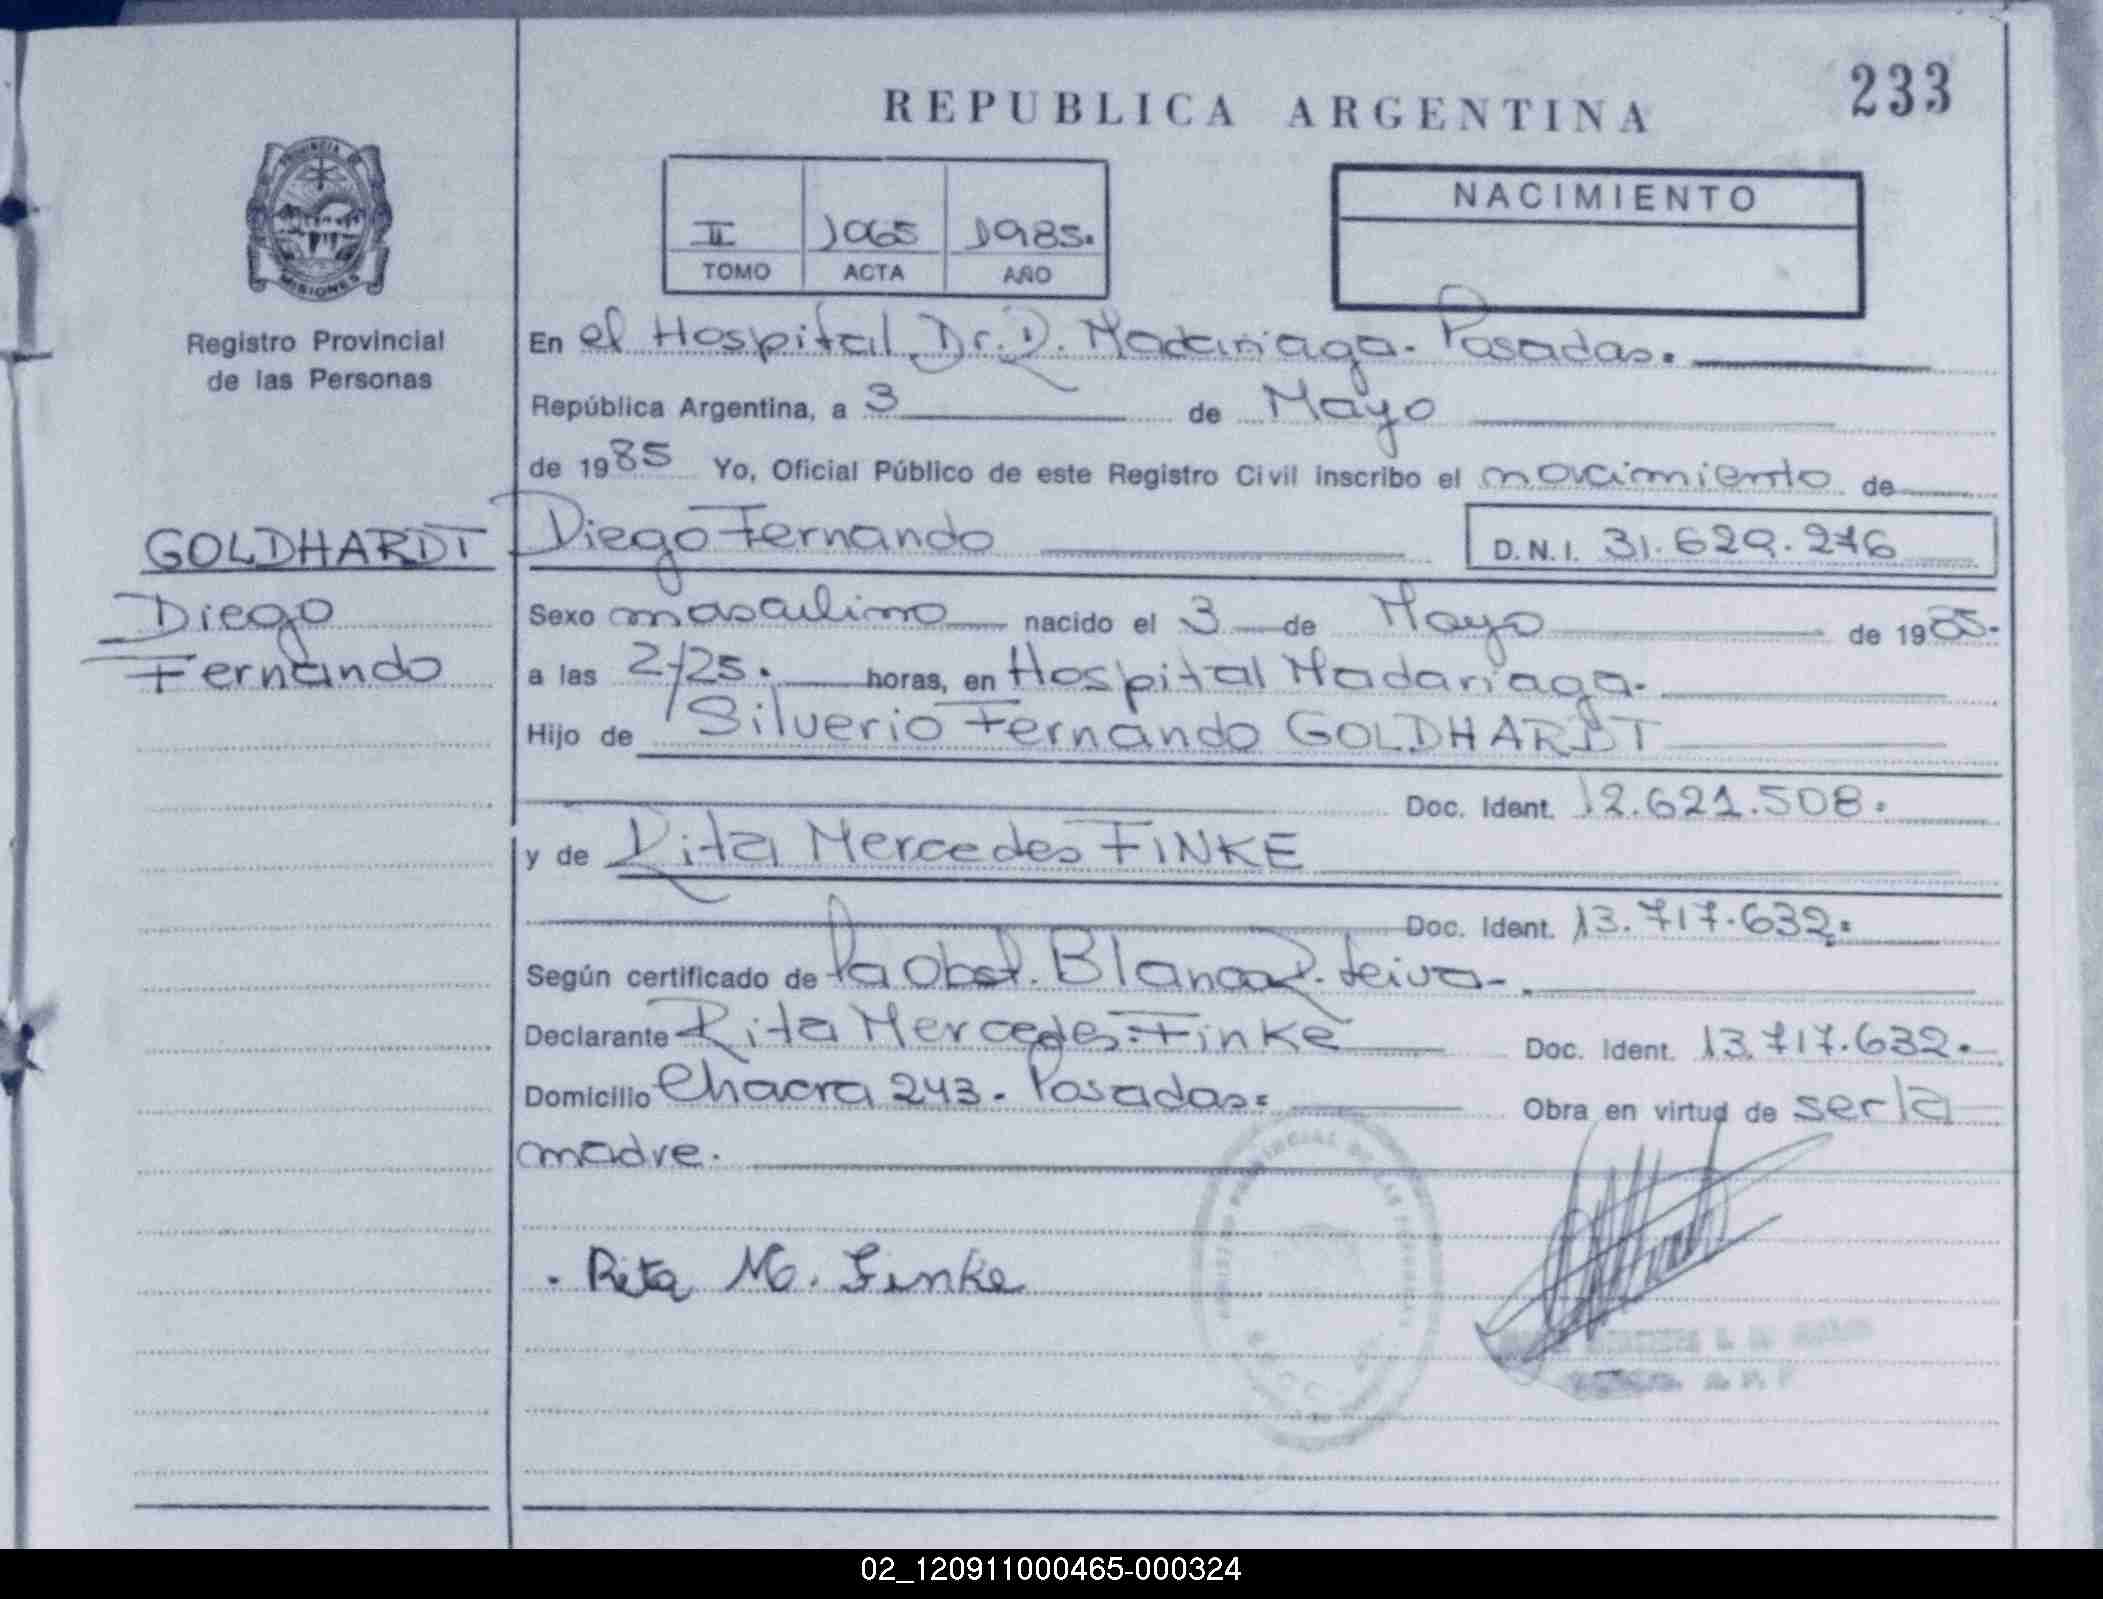 REPUBLICA ARGENTINA
233
PROVINCIA DE
MISIONES
Registro Provincial
de las Personas
II 1065 1985.
TOMO ACTA AÑO
NACIMIENTO
En el Hospital Dr. R. Madariaga. Posadas.
República Argentina, a 3 de Mayo
de 1985 Yo, Oficial Público de este Registro Civil inscribo el nacimiento de
GOLDHARDT
Diego
Fernando
Diego Fernando D.N.I. 31.629.276
Sexo masculino nacido el 3 de Mayo de 1985.
a las 2/25. horas, en Hospital Madariaga.
Hijo de Silverio Fernando GOLDHARDT
Doc. Ident. 12.621.508.
y de Rita Mercedes FINKE
Doc. Ident. 13.717.632.
Según certificado de la Obst. Blanca R. Leiva
Declarante Rita Mercedes Finke Doc. Ident. 13.717.632.
Domicilio Chacra 243. Posadas. Obra en virtud de ser la
madre.
Rita M. Finke
02_120911000465-000324